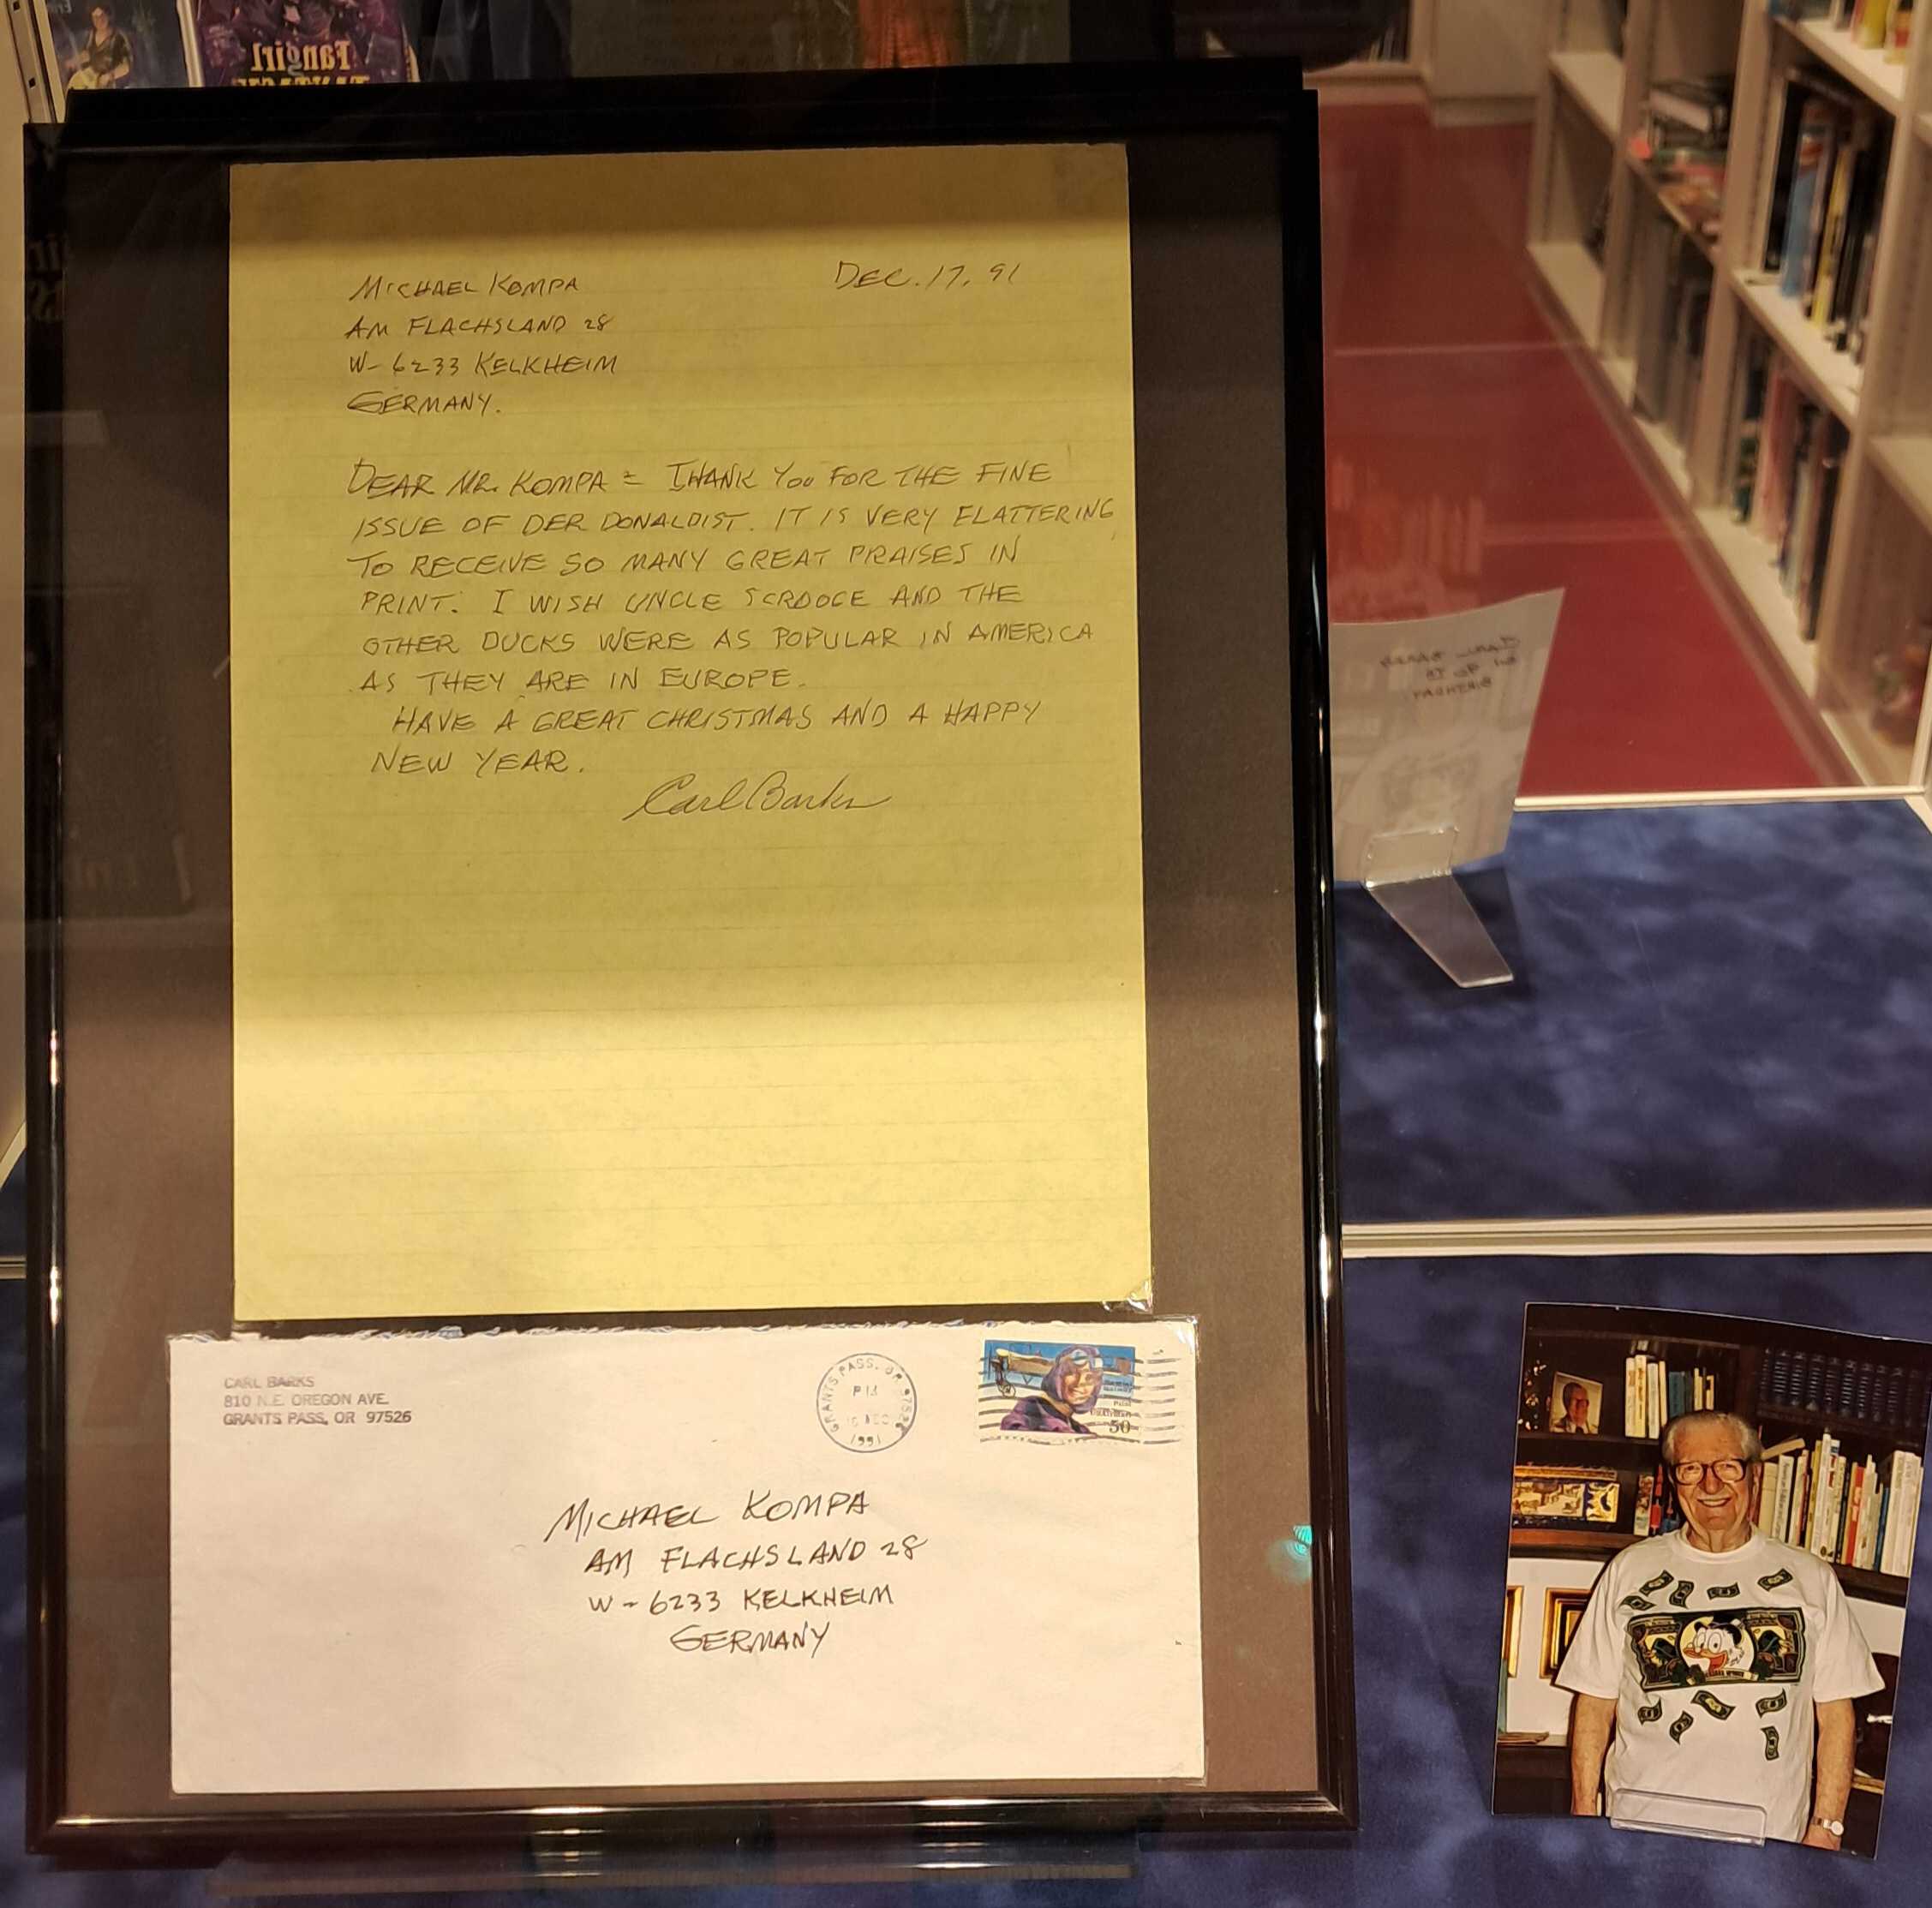 Fangirl
MICHAEL KOMPA
DEC. 17, 91
AM FLACHSLAND 28
W-6233 KELKHEIM
GERMANY.
DEAR MR. KOMPA = THANK YOU FOR THE FINE
ISSUE OF DER DONALDIST. IT IS VERY FLATTERING
TO RECEIVE SO MANY GREAT PRAISES IN
PRINT. I WISH UNCLE SCROOGE AND THE
OTHER DUCKS WERE AS POPULAR IN AMERICA
AS THEY ARE IN EUROPE.
HAVE A GREAT CHRISTMAS AND A HAPPY
NEW YEAR.
Carl Barks
CARL BARKS
810 N.E. OREGON AVE.
GRANTS PASS, OR 97526
GRANTS PASS, OR 97526
PM
DEC
1991
50
MICHAEL KOMPA
AM FLACHSLAND 28
W-6233 KELKHEIM
GERMANY
CARL BARKS
BIRTHDAY